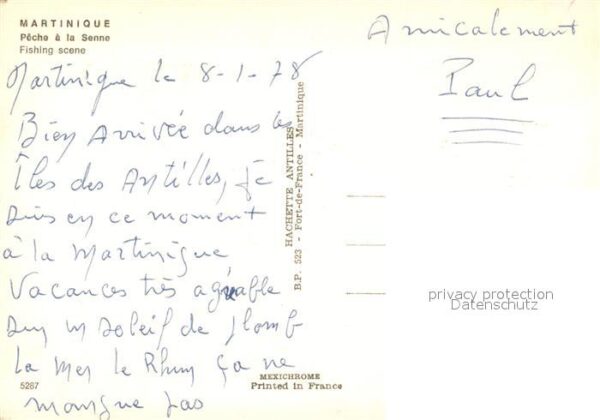 MARTINIQUE
Pêche à la Senne
Fishing scene
Martinique le 8-1-78
Bien Arrivée dans les
Îles des Antilles, je
suis en ce moment
à la Martinique
Vacances très agréable
sous un soleil de plomb
la mer le Rhum ça ne
manque pas
Amicalement
Paul
HACHETTE ANTILLES
B.P. 523 - Fort-de-France - Martinique
privacy protection
Datenschutz
5287
MEXICHROME
Printed in France